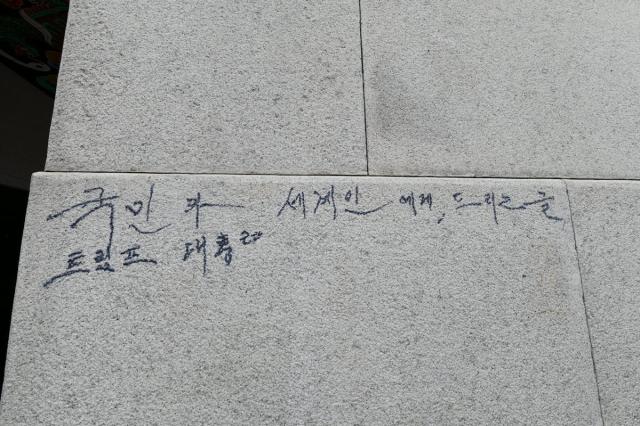 국민과 세계인에게, 드리는 글,
트럼프 대통령